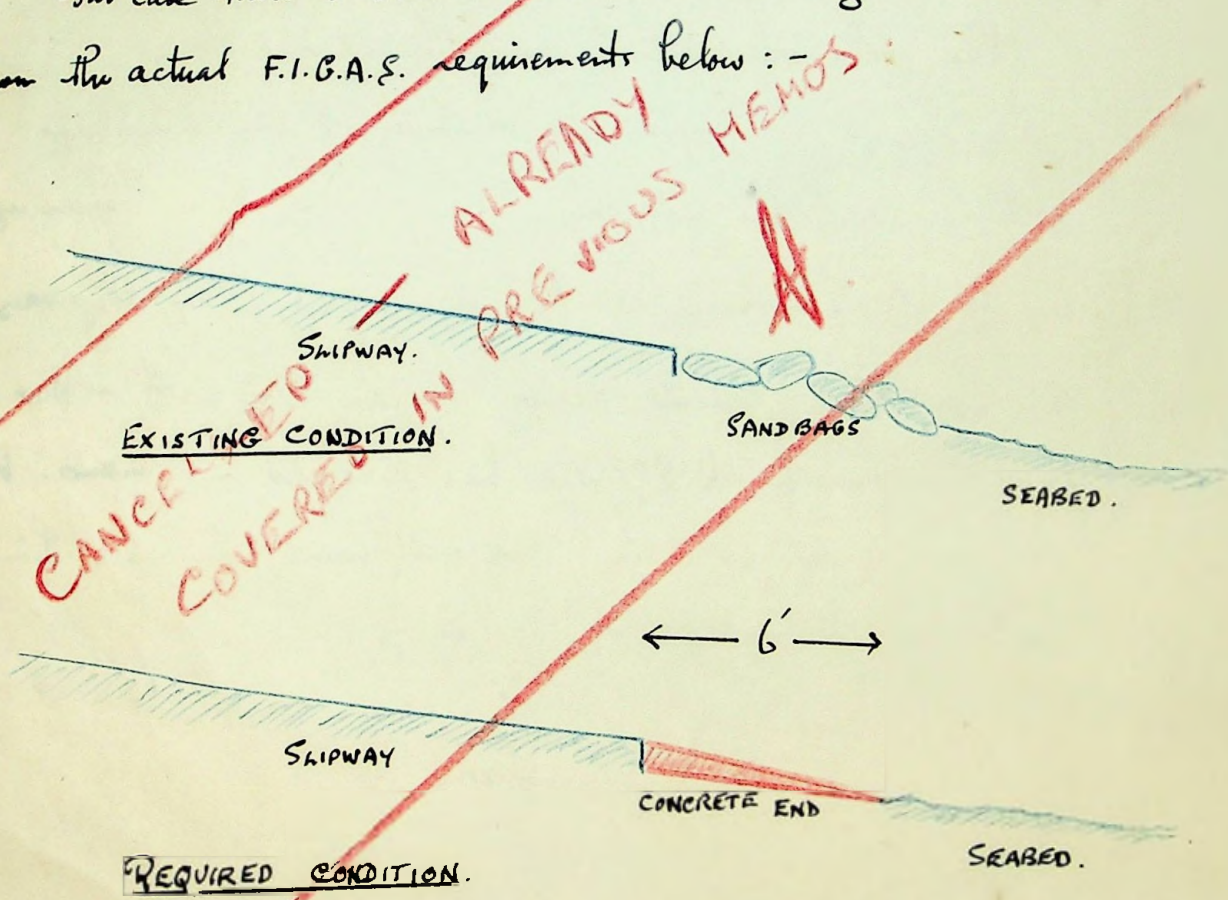 the actual F.I.G.A.S. requirements below : -
CANCELLED ALREADY
COVERED IN PREVIOUS MEMOS
SLIPWAY.
EXISTING CONDITION.
SANDBAGS
SEABED.
6'
SLIPWAY
CONCRETE END
SEABED.
REQUIRED CONDITION.